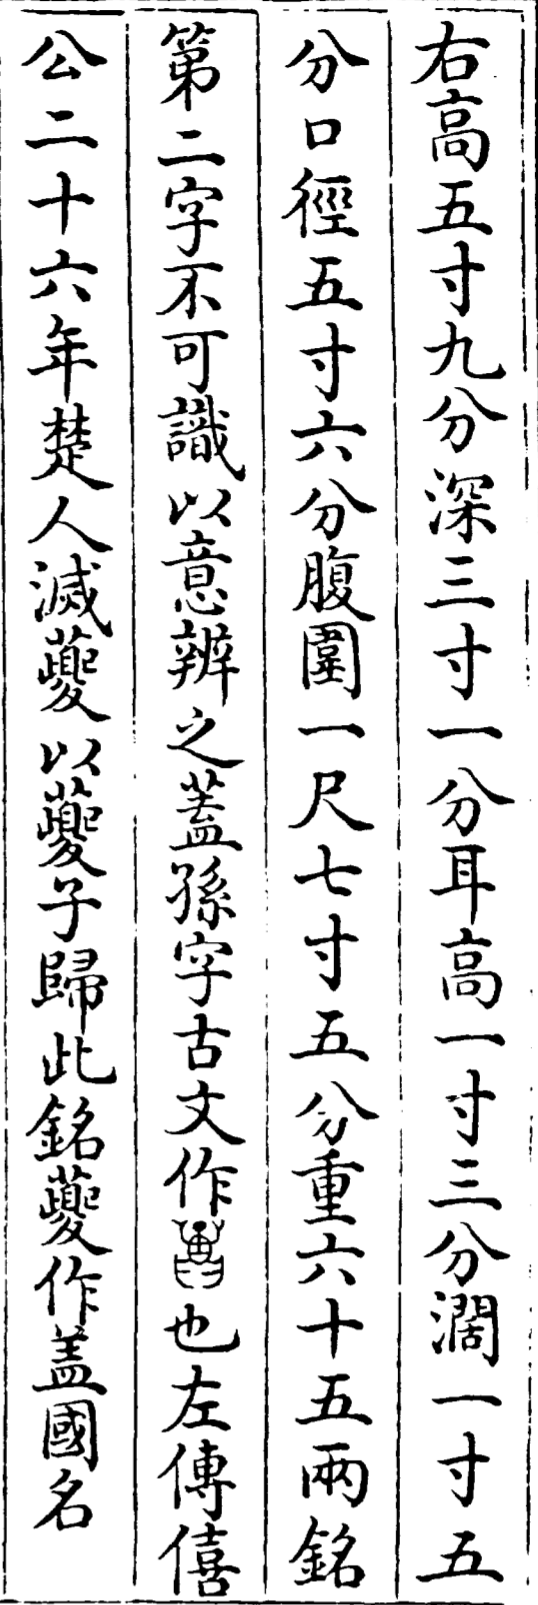 右高五寸九分深三寸一分耳高一寸三分濶一寸五
分口徑五寸六分腹圍一尺七寸五分重六十五兩銘
第二字不可識以意辨之葢孫字古文作也左傳僖
公二十六年楚人滅夔以夔子歸此銘夔作盖國名